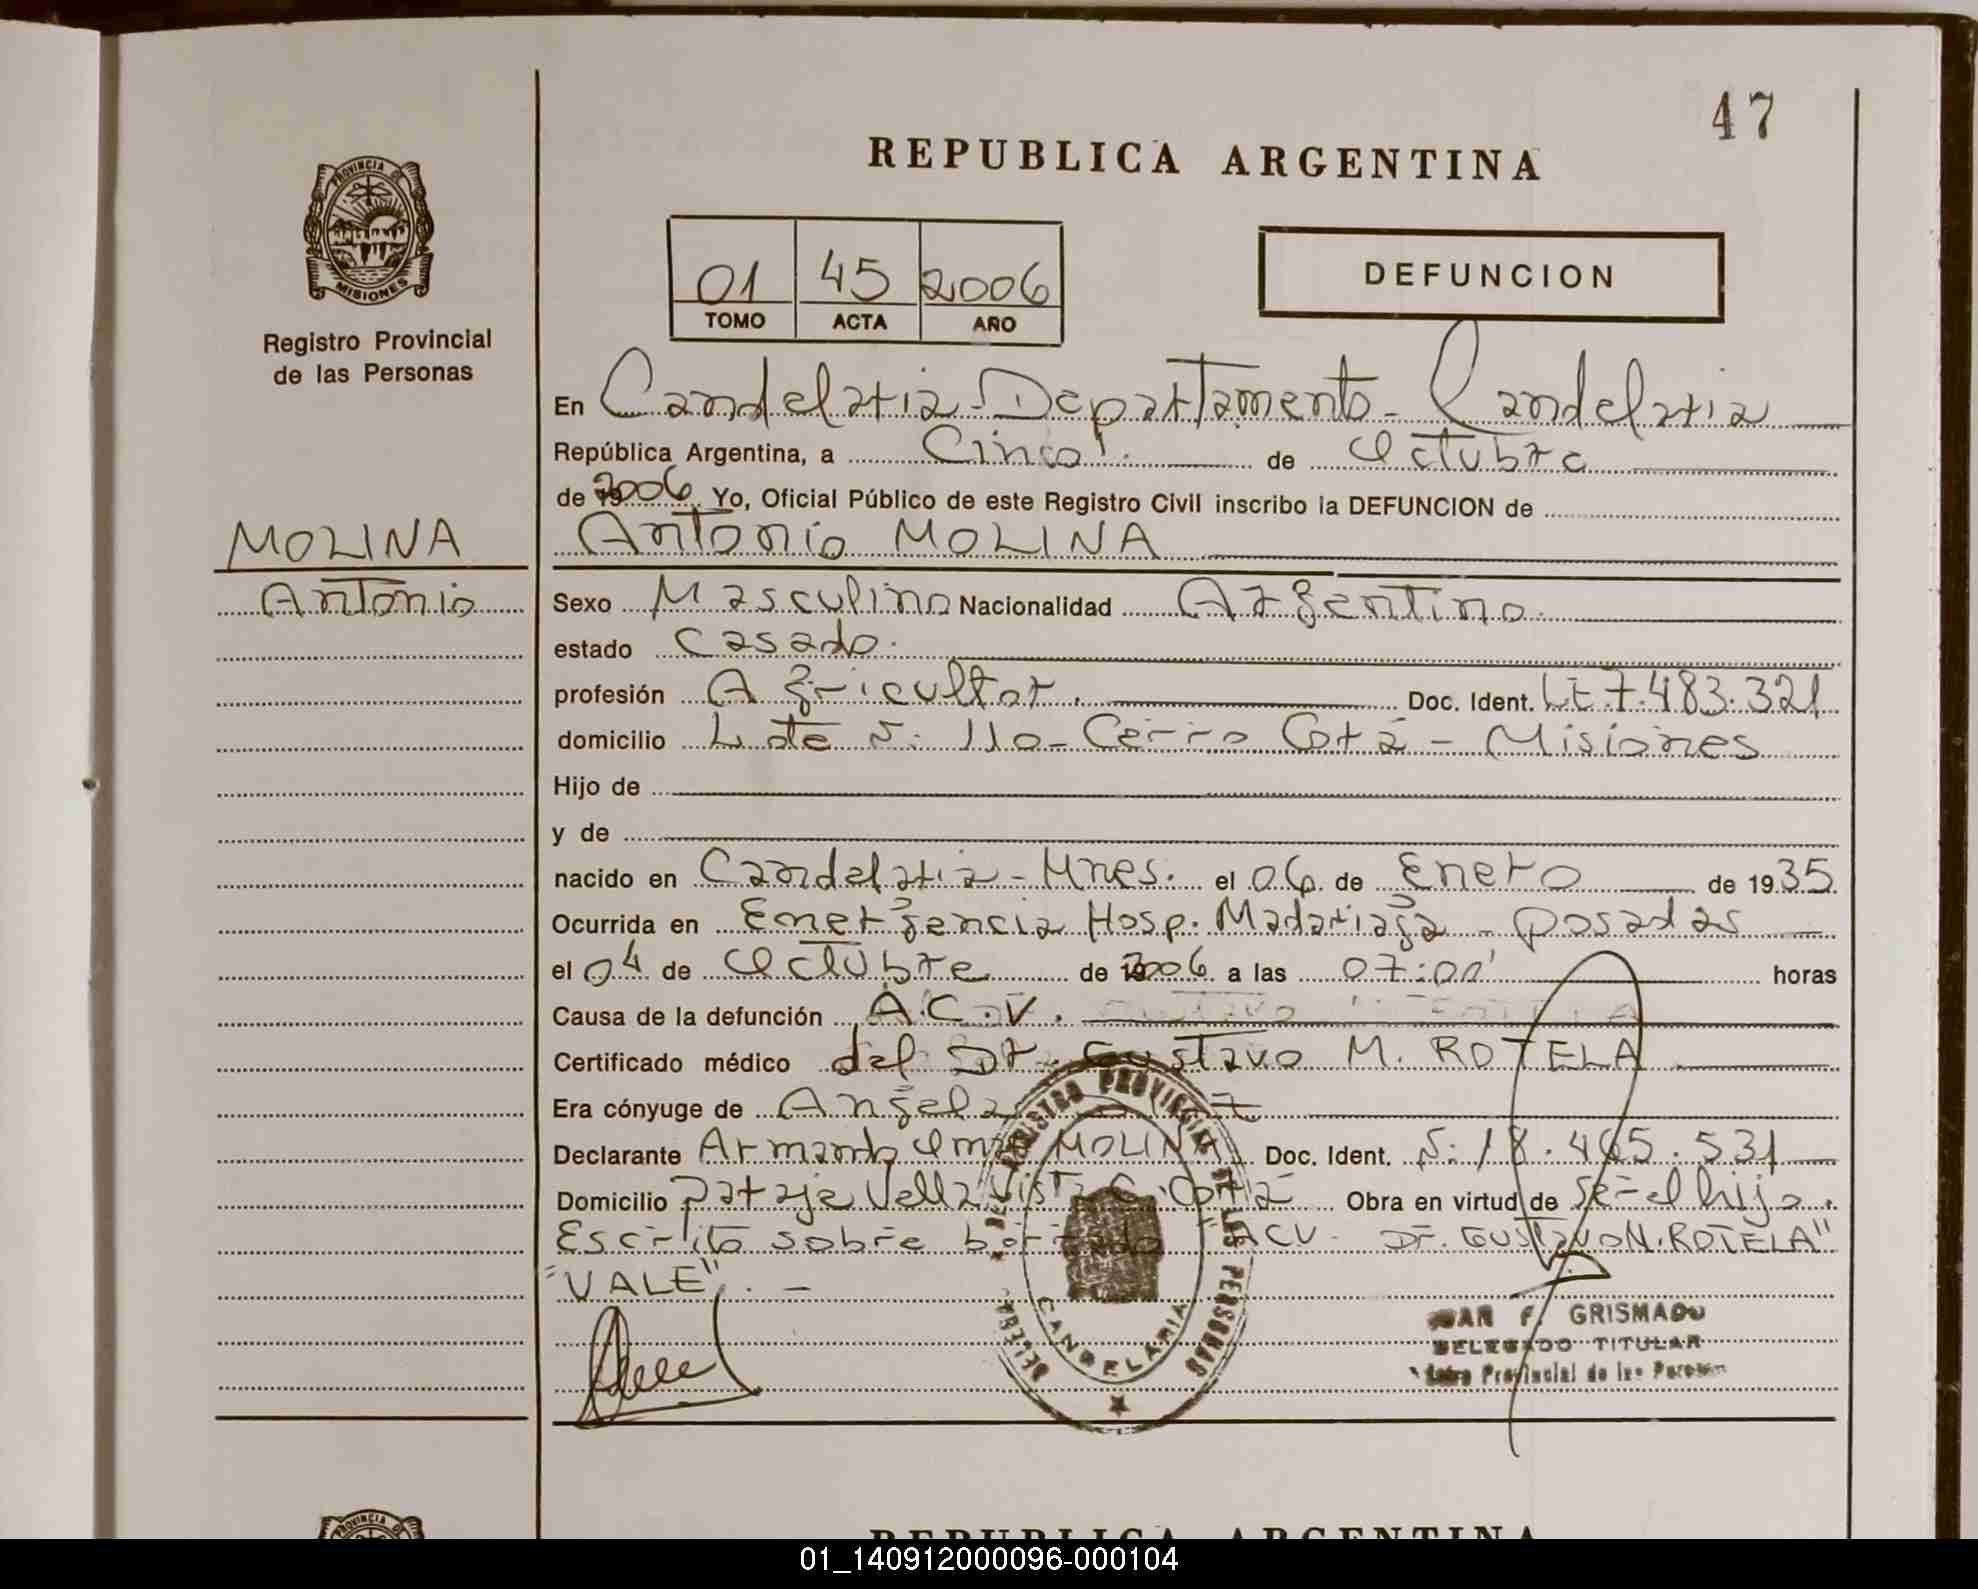 47
REPUBLICA ARGENTINA
PROVINCIA DE
MISIONES
Registro Provincial
de las Personas
01 45 2006
TOMO ACTA AÑO
DEFUNCION
En Candelaria - Departamento - Candelaria
República Argentina, a Cinco de Octubre
de 2006 Yo, Oficial Público de este Registro Civil inscribo la DEFUNCION de
MOLINA
Antonio
Antonio MOLINA
Sexo Masculino Nacionalidad Argentino.
estado Casado.
profesión Agricultor. Doc. Ident. LE 7.483.321
domicilio Lote N: 110 - Cerro Corá - Misiones
Hijo de
y de
nacido en Candelaria - Mnes. el 06 de Enero de 1935
Ocurrida en Emergencia Hosp. Madariaga - Posadas
el 04 de Octubre de 2006 a las 07:00' horas
Causa de la defunción A.C.V.
Certificado médico del Dr. Gustavo M. ROTELA
Era cónyuge de Angela
Declarante Armando Omar MOLINA Doc. Ident. N: 18.465.531
Domicilio paraje Vella Vista C. Corá Obra en virtud de Ser el hijo.
Escrito sobre borrado "ACV - Dr. GUSTAVO M. ROTELA"
"VALE". -
REGISTRO PROVINCIAL DE LAS PERSONAS
CANDELARIA
JUAN F. GRISMADO
DELEGADO TITULAR
Provincial de las Personas
PROVINCIA DE
REPUBLICA ARGENTINA
01_140912000096-000104